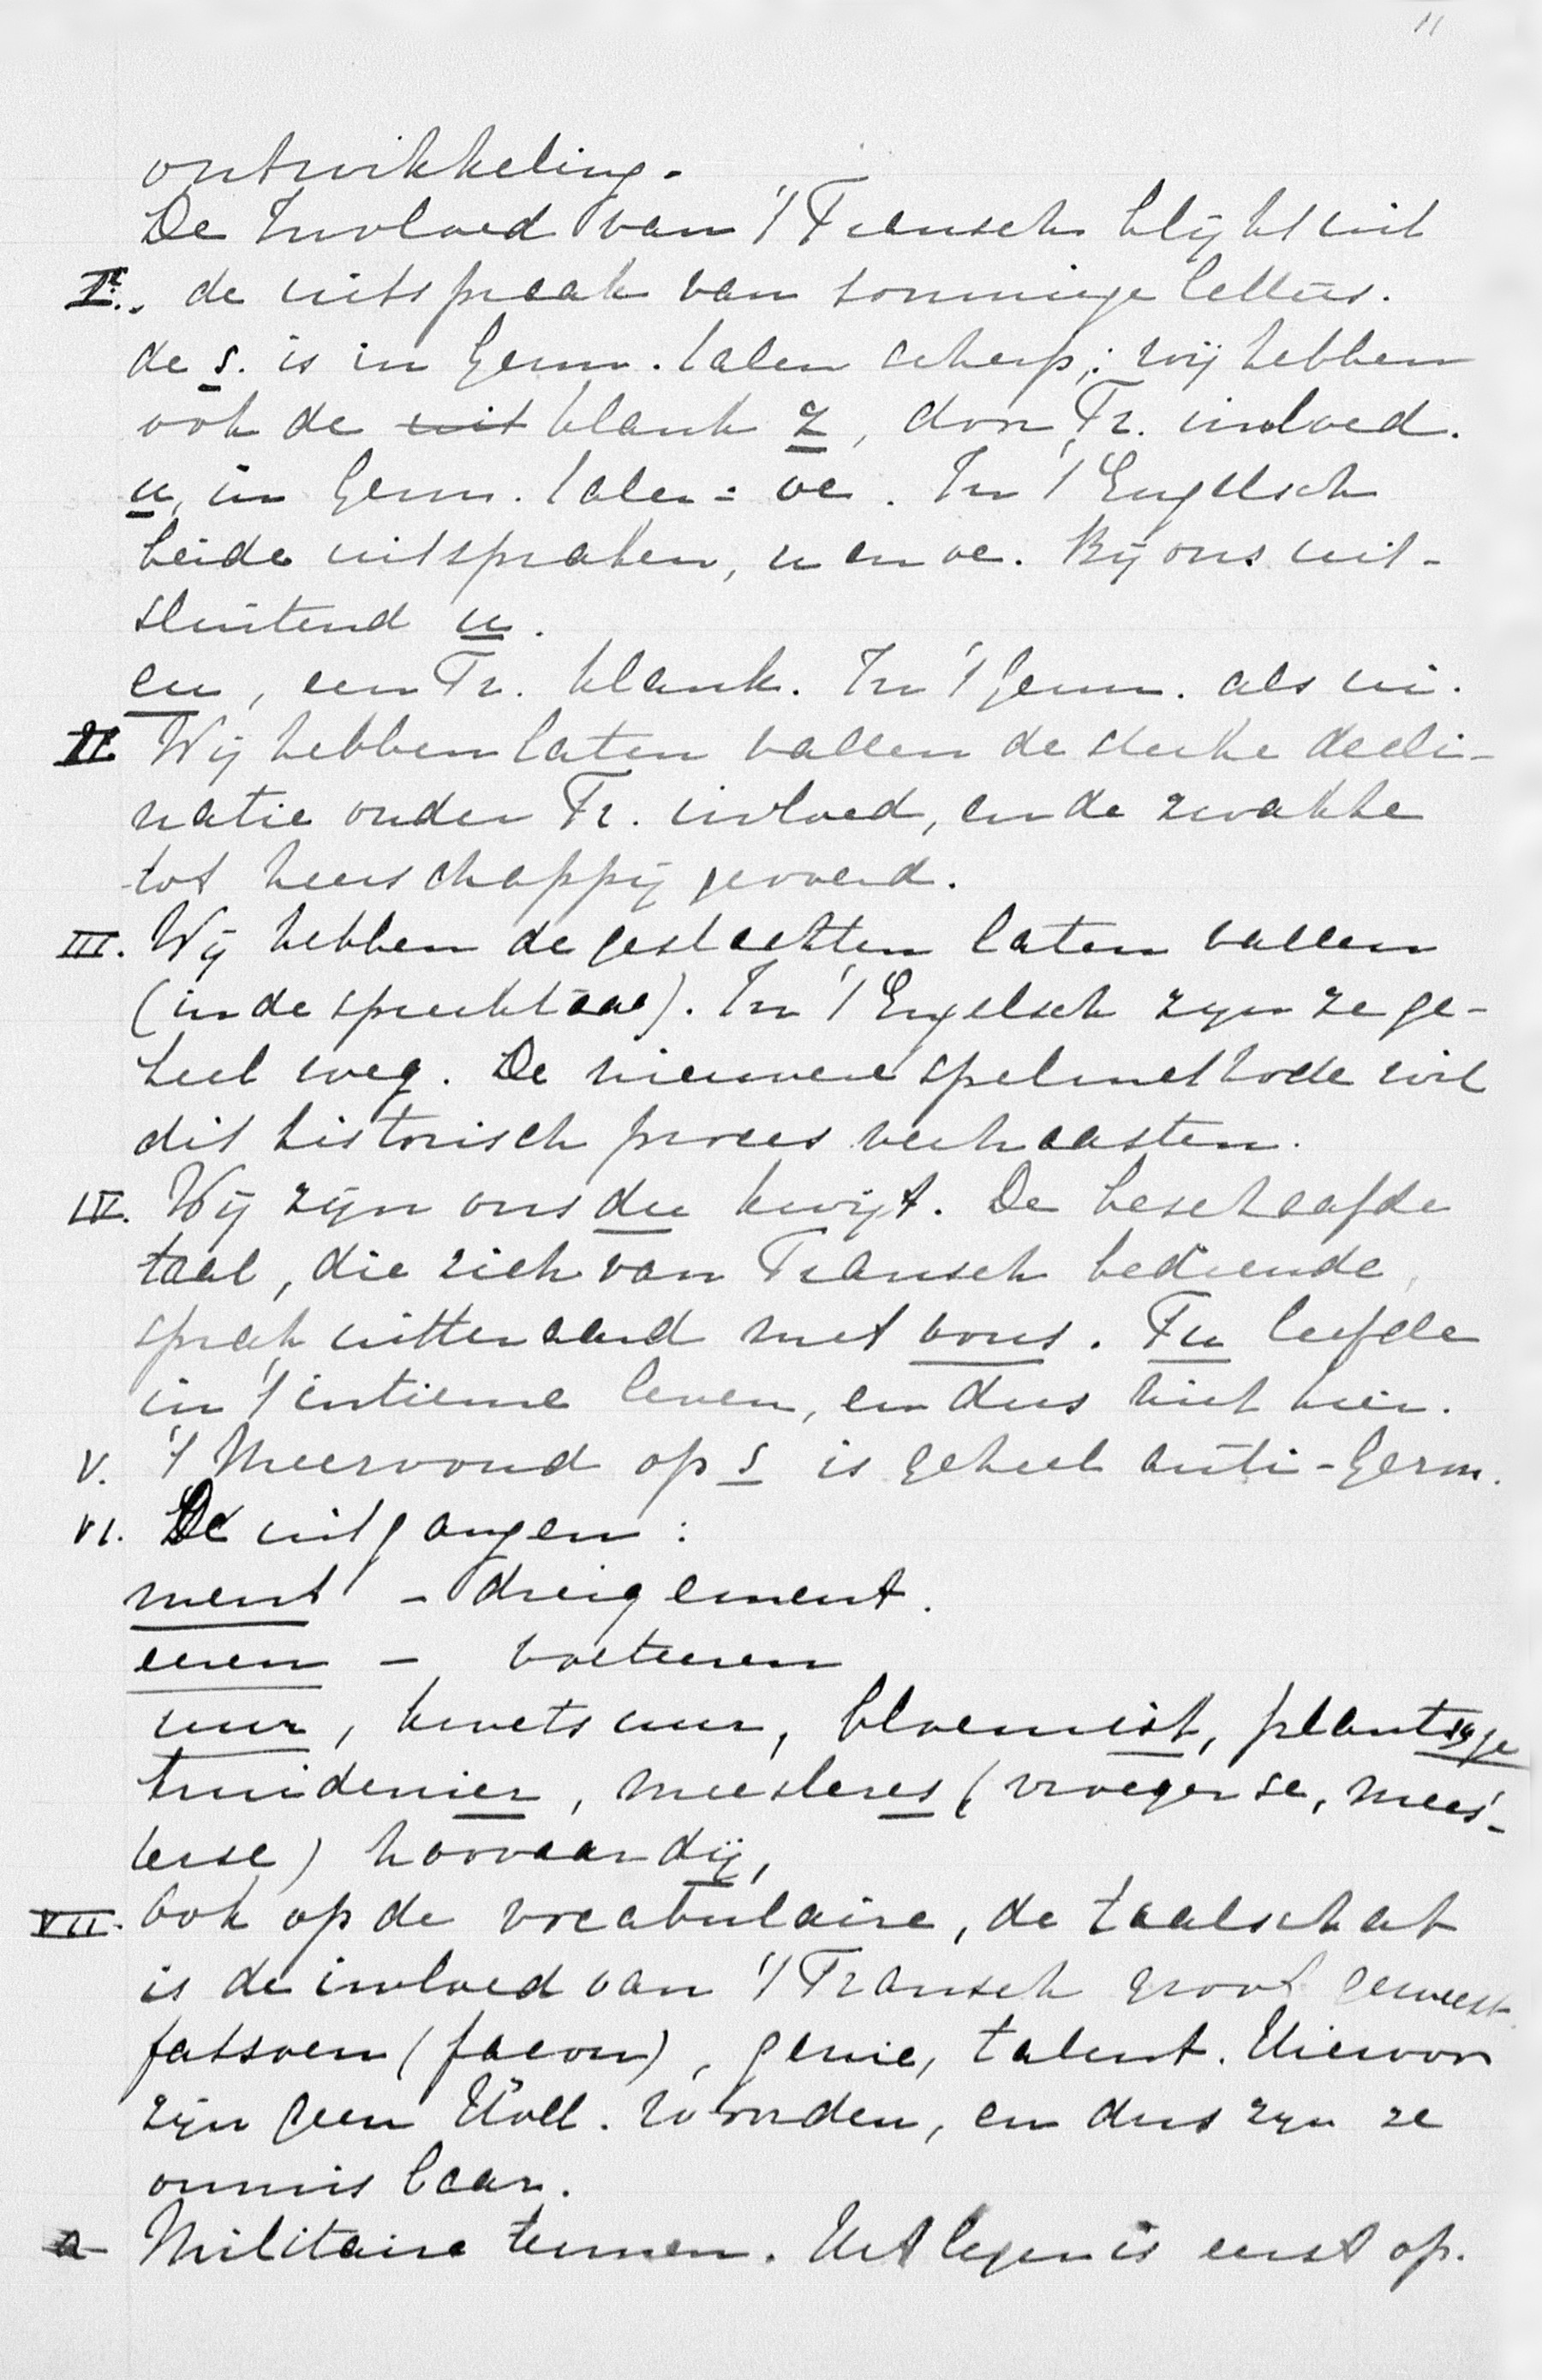 11
ontwikkeling.
De Invloed van 't Fransch blijkt uit
Ie. de uitspraak van sommige letters.
de s. is in Germ. talen scherp; wij hebben
ook de uit klank z, door Fr. invloed.
u, in Germ. talen = oe. In 't Engelsch
beide uitspraken, u en oe. Bij ons uit-
sluitend u.
eu, een Fr. klank. In 't Germ. als ui.
II. Wij hebben laten vallen de sterke decli-
natie onder Fr. invloed, en de zwakke
tot heerschappij gevoerd.
III. Wij hebben de geslachten laten vallen
(in de spreektaal). In 't Engelsch zijn ze ge-
heel weg. De nieuwere spelmethode wil
dit historisch proces verhaasten.
IV. Wij zijn ons du kwijt. De beschaafde
taal, die zich van Fransch bediende,
sprak uitteraard met vous. Tu leefde
in 't intieme leven, en dus niet hier.
V. 't Meervoud op s is geheel anti-Germ.
VI. De uitgangen:
ment - dreigement.
eeren - voeteeren
uur, kwetsuur, bloemist, plantage
truidenier, meesteres (vroeger se, mees-
terse) hoovaardij,
VII. Ook op de vocabulaire, de taalschat
is de invloed van 't Fransch groot geweest.
fatsoen (facon), genie, talent. Hiervoor
zijn geen Holl. woorden, en dus zijn ze
onmisbaar.
a Militaire termen. Het leger is eerst op.